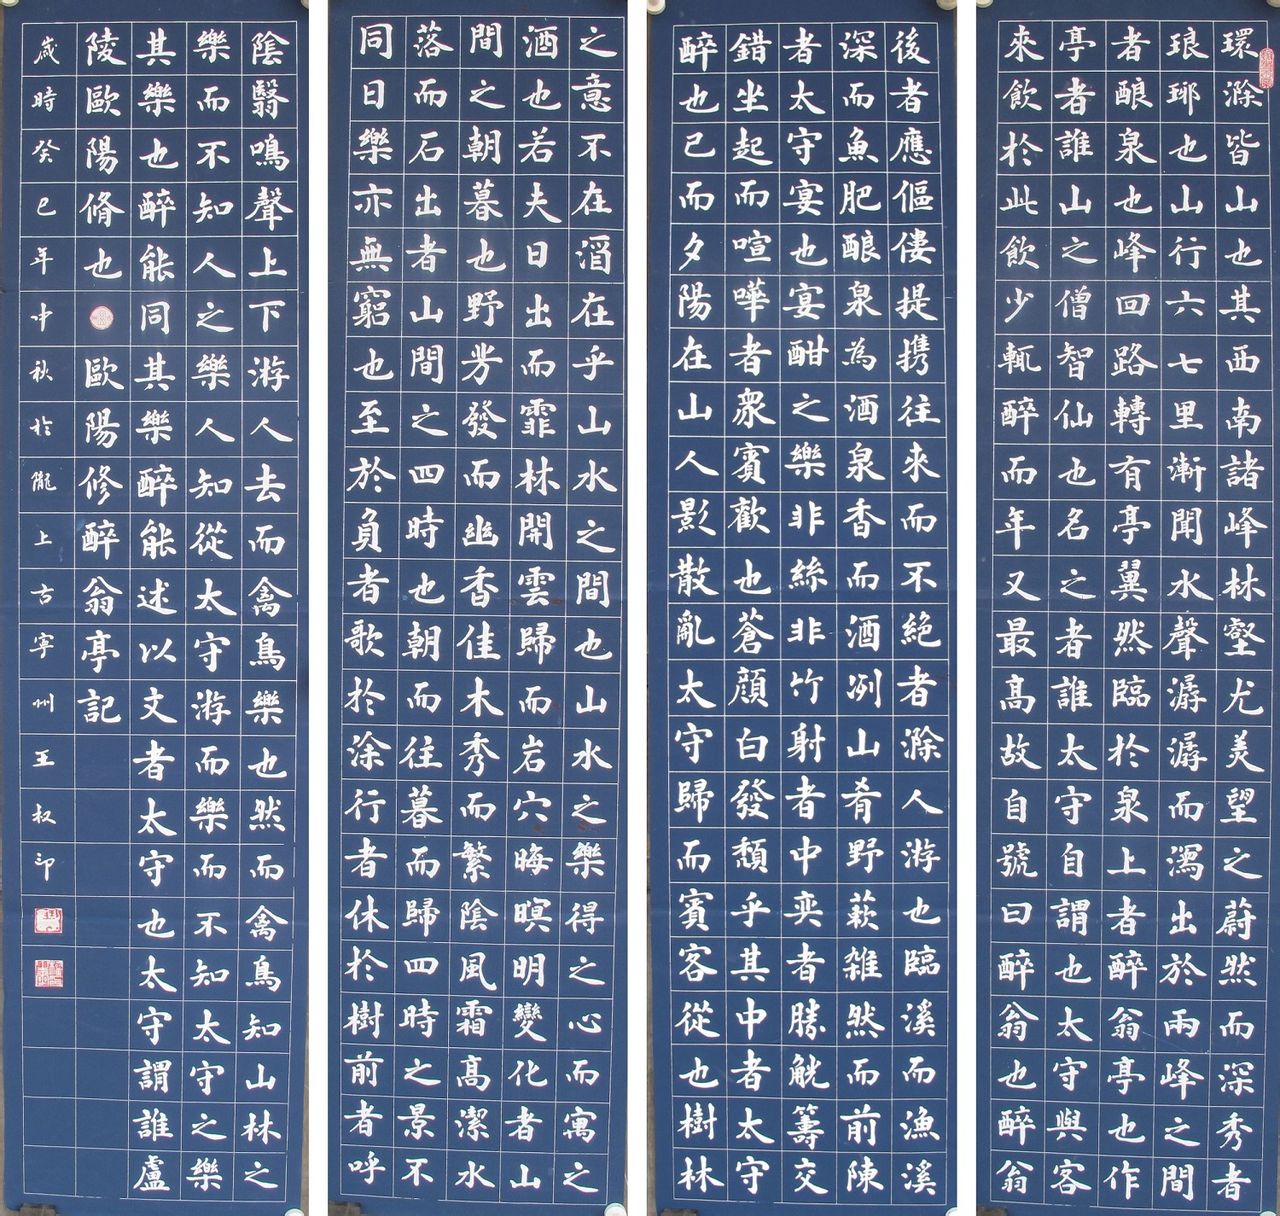 環滁皆山也其西南諸峰林壑尤美望之蔚然而深秀者
琅琊也山行六七里漸聞水聲潺潺而瀉出於兩峰之間
者酿泉也峰回路轉有亭翼然臨於泉上者醉翁亭也作
亭者誰山之僧智仙也名之者誰太守自謂也太守與客
來飲於此飲少輒醉而年又最高故自號曰醉翁也醉翁
之意不在酒在乎山水之間也山水之樂得之心而寓之
酒也若夫日出而霏林開雲歸而岩穴晦暝明變化者山
間之朝暮也野芳發而幽香佳木秀而繁陰風霜高潔水
落而石出者山間之四時也朝而往暮而歸四時之景不
同日樂亦無窮也至於負者歌於涂行者休於樹前者呼
後者應傴僂提携往來而不絕者滁人游也臨溪而漁溪
深而魚肥酿泉為酒泉香而酒洌山肴野蔌雜然而前陳
者太守宴也宴酣之樂非絲非竹射者中奕者勝觥籌交
錯坐起而喧嘩者眾賓歡也蒼顏白發頹乎其中者太守
醉也已而夕陽在山人影散亂太守歸而賓客從也樹林
陰翳鳴聲上下游人去而禽鳥樂也然而禽鳥知山林之
樂而不知人之樂人知從太守游而樂而不知太守之樂
其樂也醉能同其樂醉能述以文者太守也太守謂誰盧
陵歐陽脩也歐陽修醉翁亭記
歲時癸巳年中秋於隴上古寧州王权印